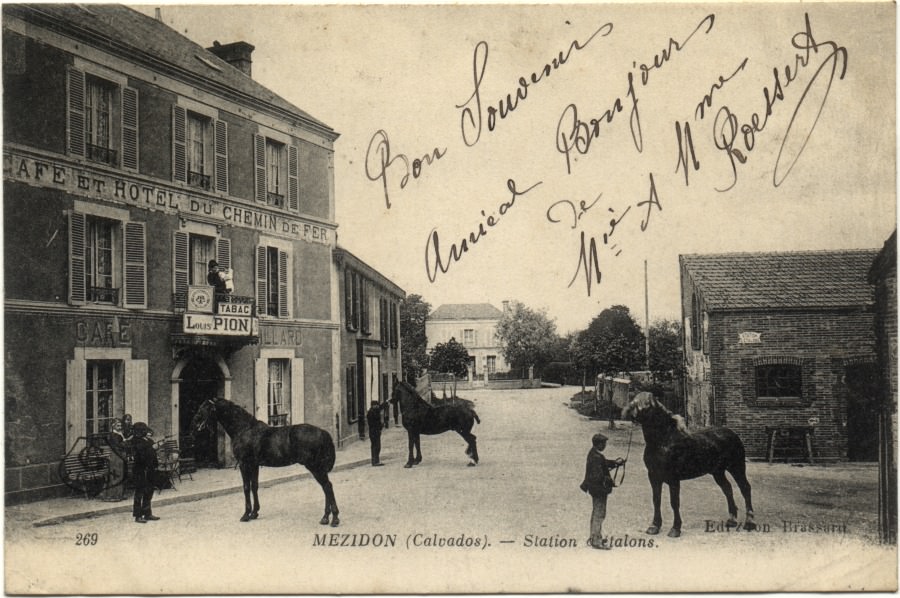 Bon Souvenir
Amical Bonjour
de
Mie A Mme
Roessert
CAFE ET HOTEL DU CHEMIN DE FER
TABAC
LOUIS PION
CAFÉ
BILLARD
269
MEZIDON (Calvados). — Station d'étalons.
Edition Brassard